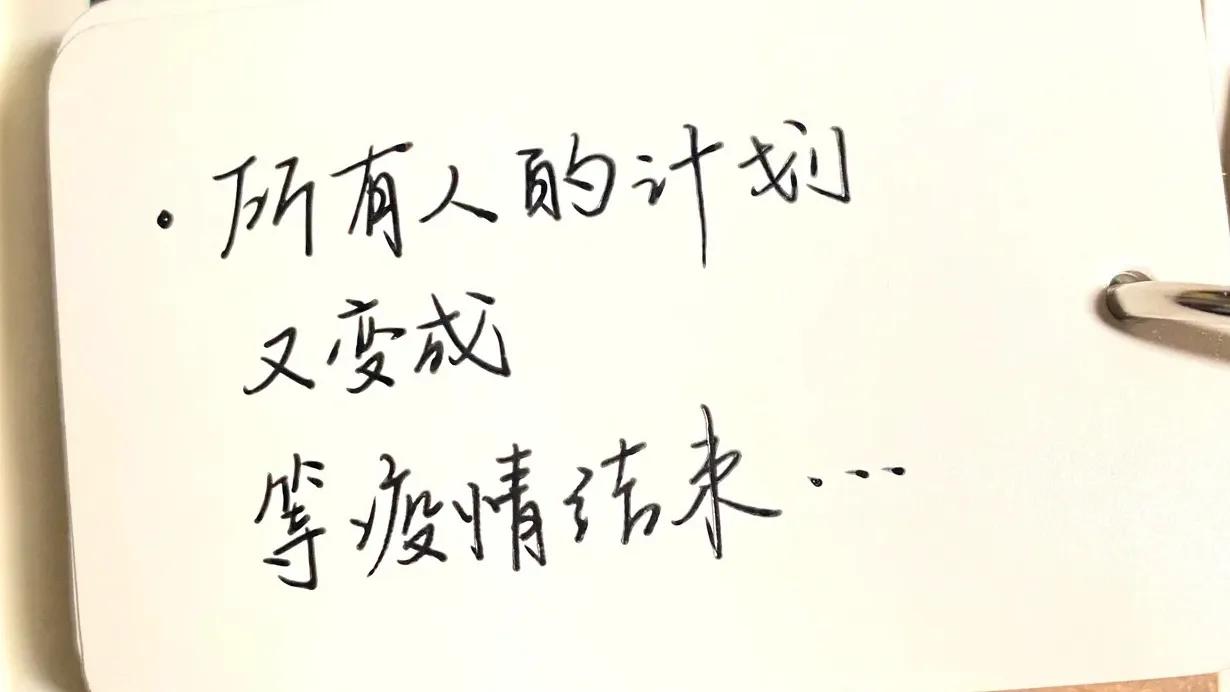 ·所有人的计划
又变成
等疫情结束…